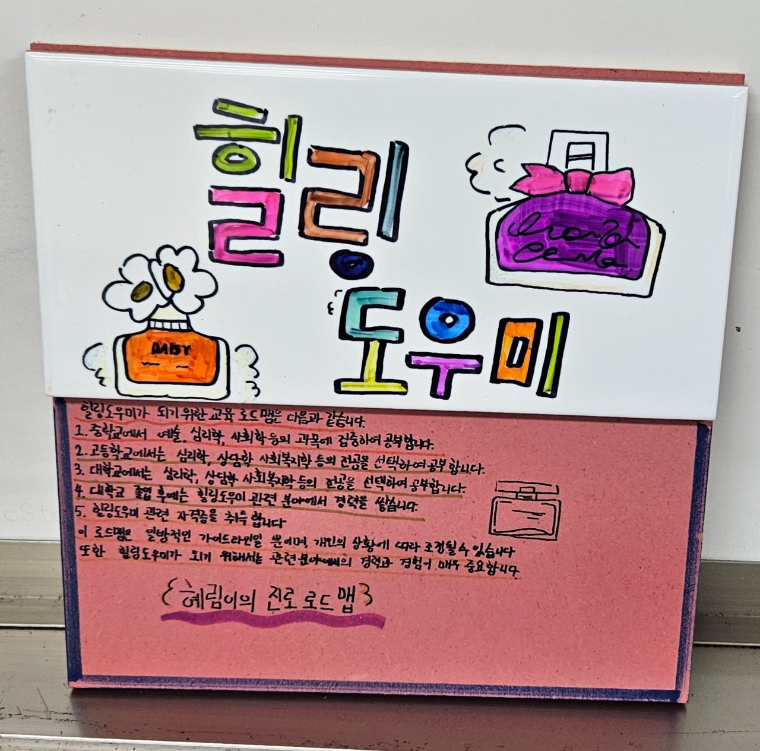 힐링
도우미
DAISY
힐링도우미가 되기 위한 교육 로드맵은 다음과 같습니다.
1. 중학교에서 예술, 심리학, 사회학 등의 과목에 집중하여 공부합니다.
2. 고등학교에서는 심리학, 상담학, 사회복지학 등의 전공을 선택하여 공부합니다.
3. 대학교에서는 심리학, 상담학 사회복지학 등의 전공을 선택하여 공부합니다.
4. 대학교 졸업 후에는 힐링도우미 관련 분야에서 경력을 쌓습니다.
5. 힐링도우미 관련 자격증을 취득 합니다
이 로드맵은 일반적인 가이드라인일 뿐이며 개인의 상황에 따라 조정될 수 있습니다
또한 힐링도우미가 되기 위해서는 관련 분야에서의 경력과 경험이 매우 중요합니다.
{혜림이의 진로 로드맵}